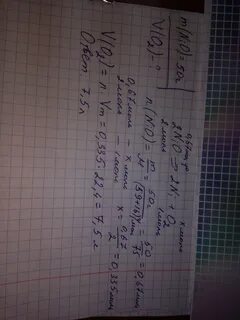 m(NO) = 50г
V(O₂) - ?
0,67моль x моль
2NO ⇒ 2N + O₂
2моль 1моль
n(NO) = m/M = 50г/(59+16)г/моль = 50/75 = 0,67моль
0,67моль - x моль
2моль - 1моль
x = 0,67/2 = 0,335моль
V(O₂) = n · Vm = 0,335 · 22,4 = 7,5 л
Ответ 7,5л